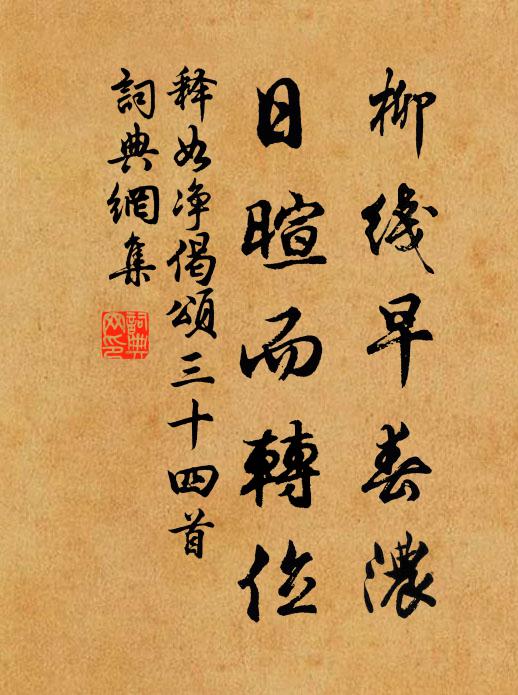 柳綫早春濃
日暄而轉位
释如净偈頌三十四首
詞典網集
詞典网印